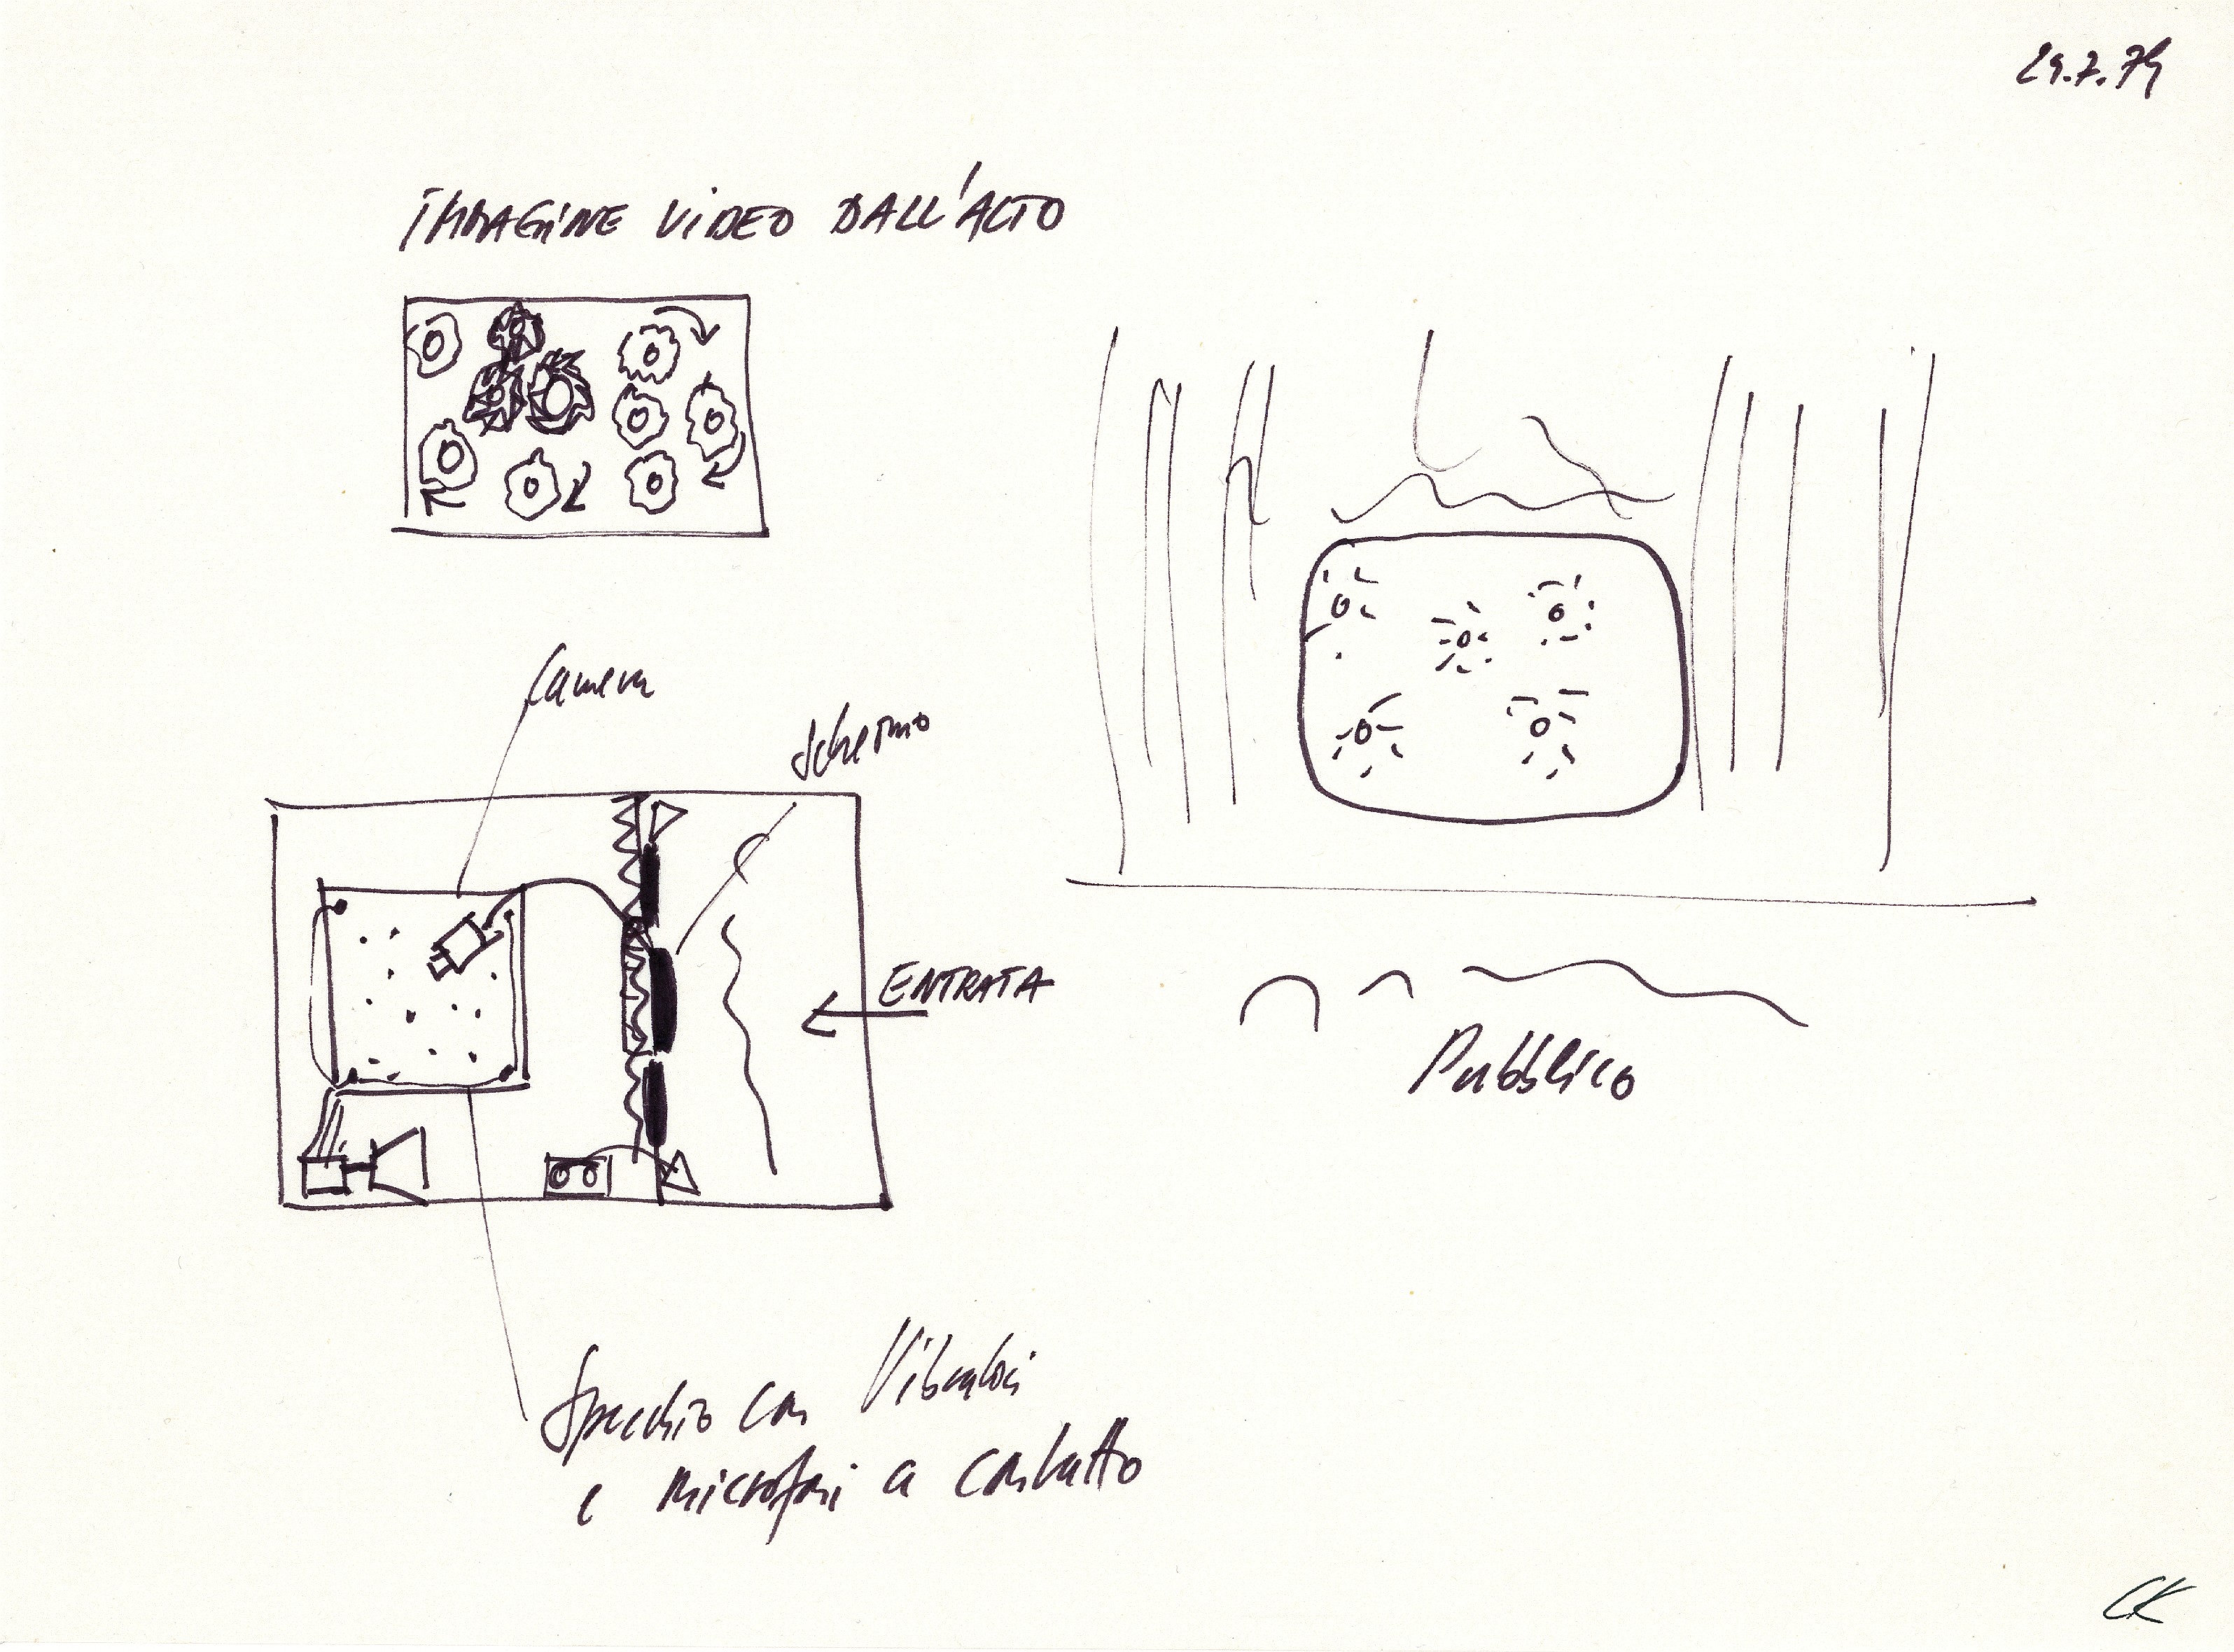 29.7.79
IMMAGINE VIDEO DALL'ALTO
Camera
Schermo
ENTRATA
Pubblico
Specchio con Vibratori
e microfoni a contatto
CK